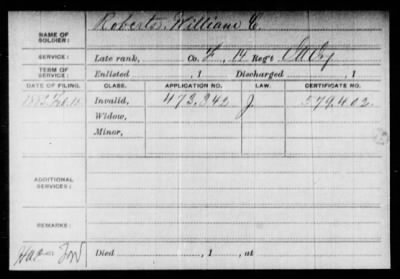 NAME OF SOLDIER: Roberts, William C.
SERVICE: Late rank, Co. F, 14 Reg't
TERM OF SERVICE: Enlisted , 1 Discharged , 1
DATE OF FILING. CLASS. APPLICATION NO. LAW. CERTIFICATE NO.
Invalid, 473.342 J. 579.402
Widow,
Minor,
ADDITIONAL SERVICES:
REMARKS:
Died , 1 , at